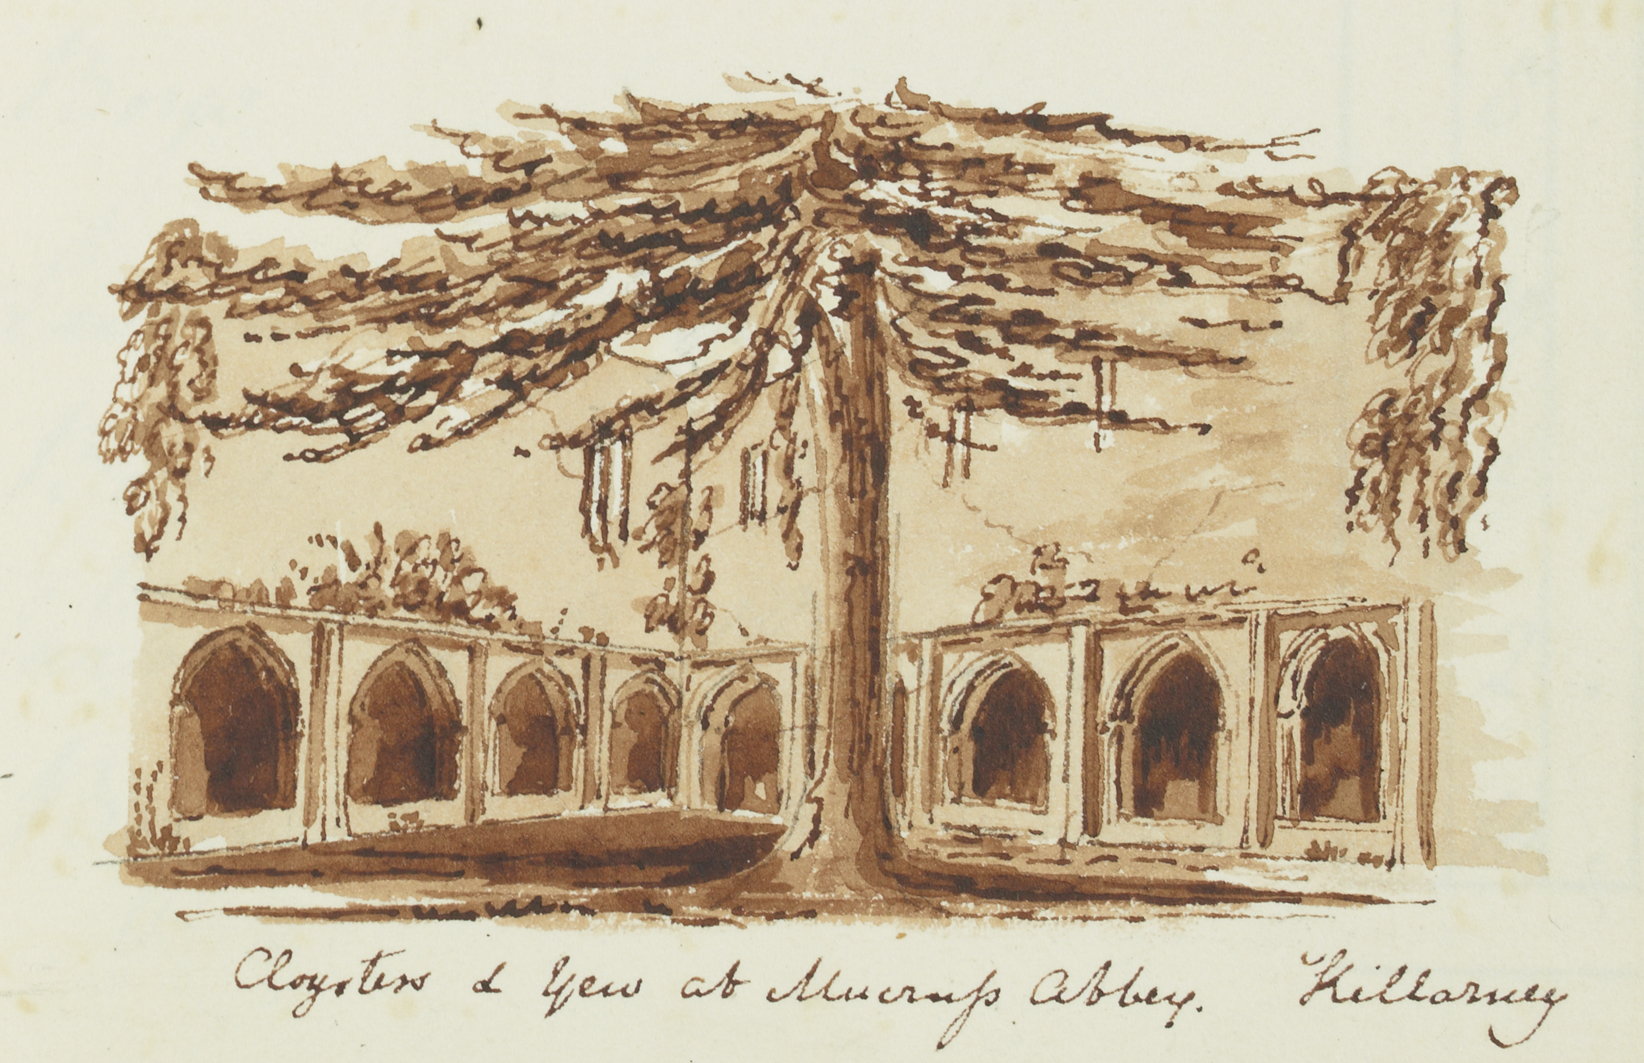 Cloysters & Yew at Mucruss Abbey. Killarney